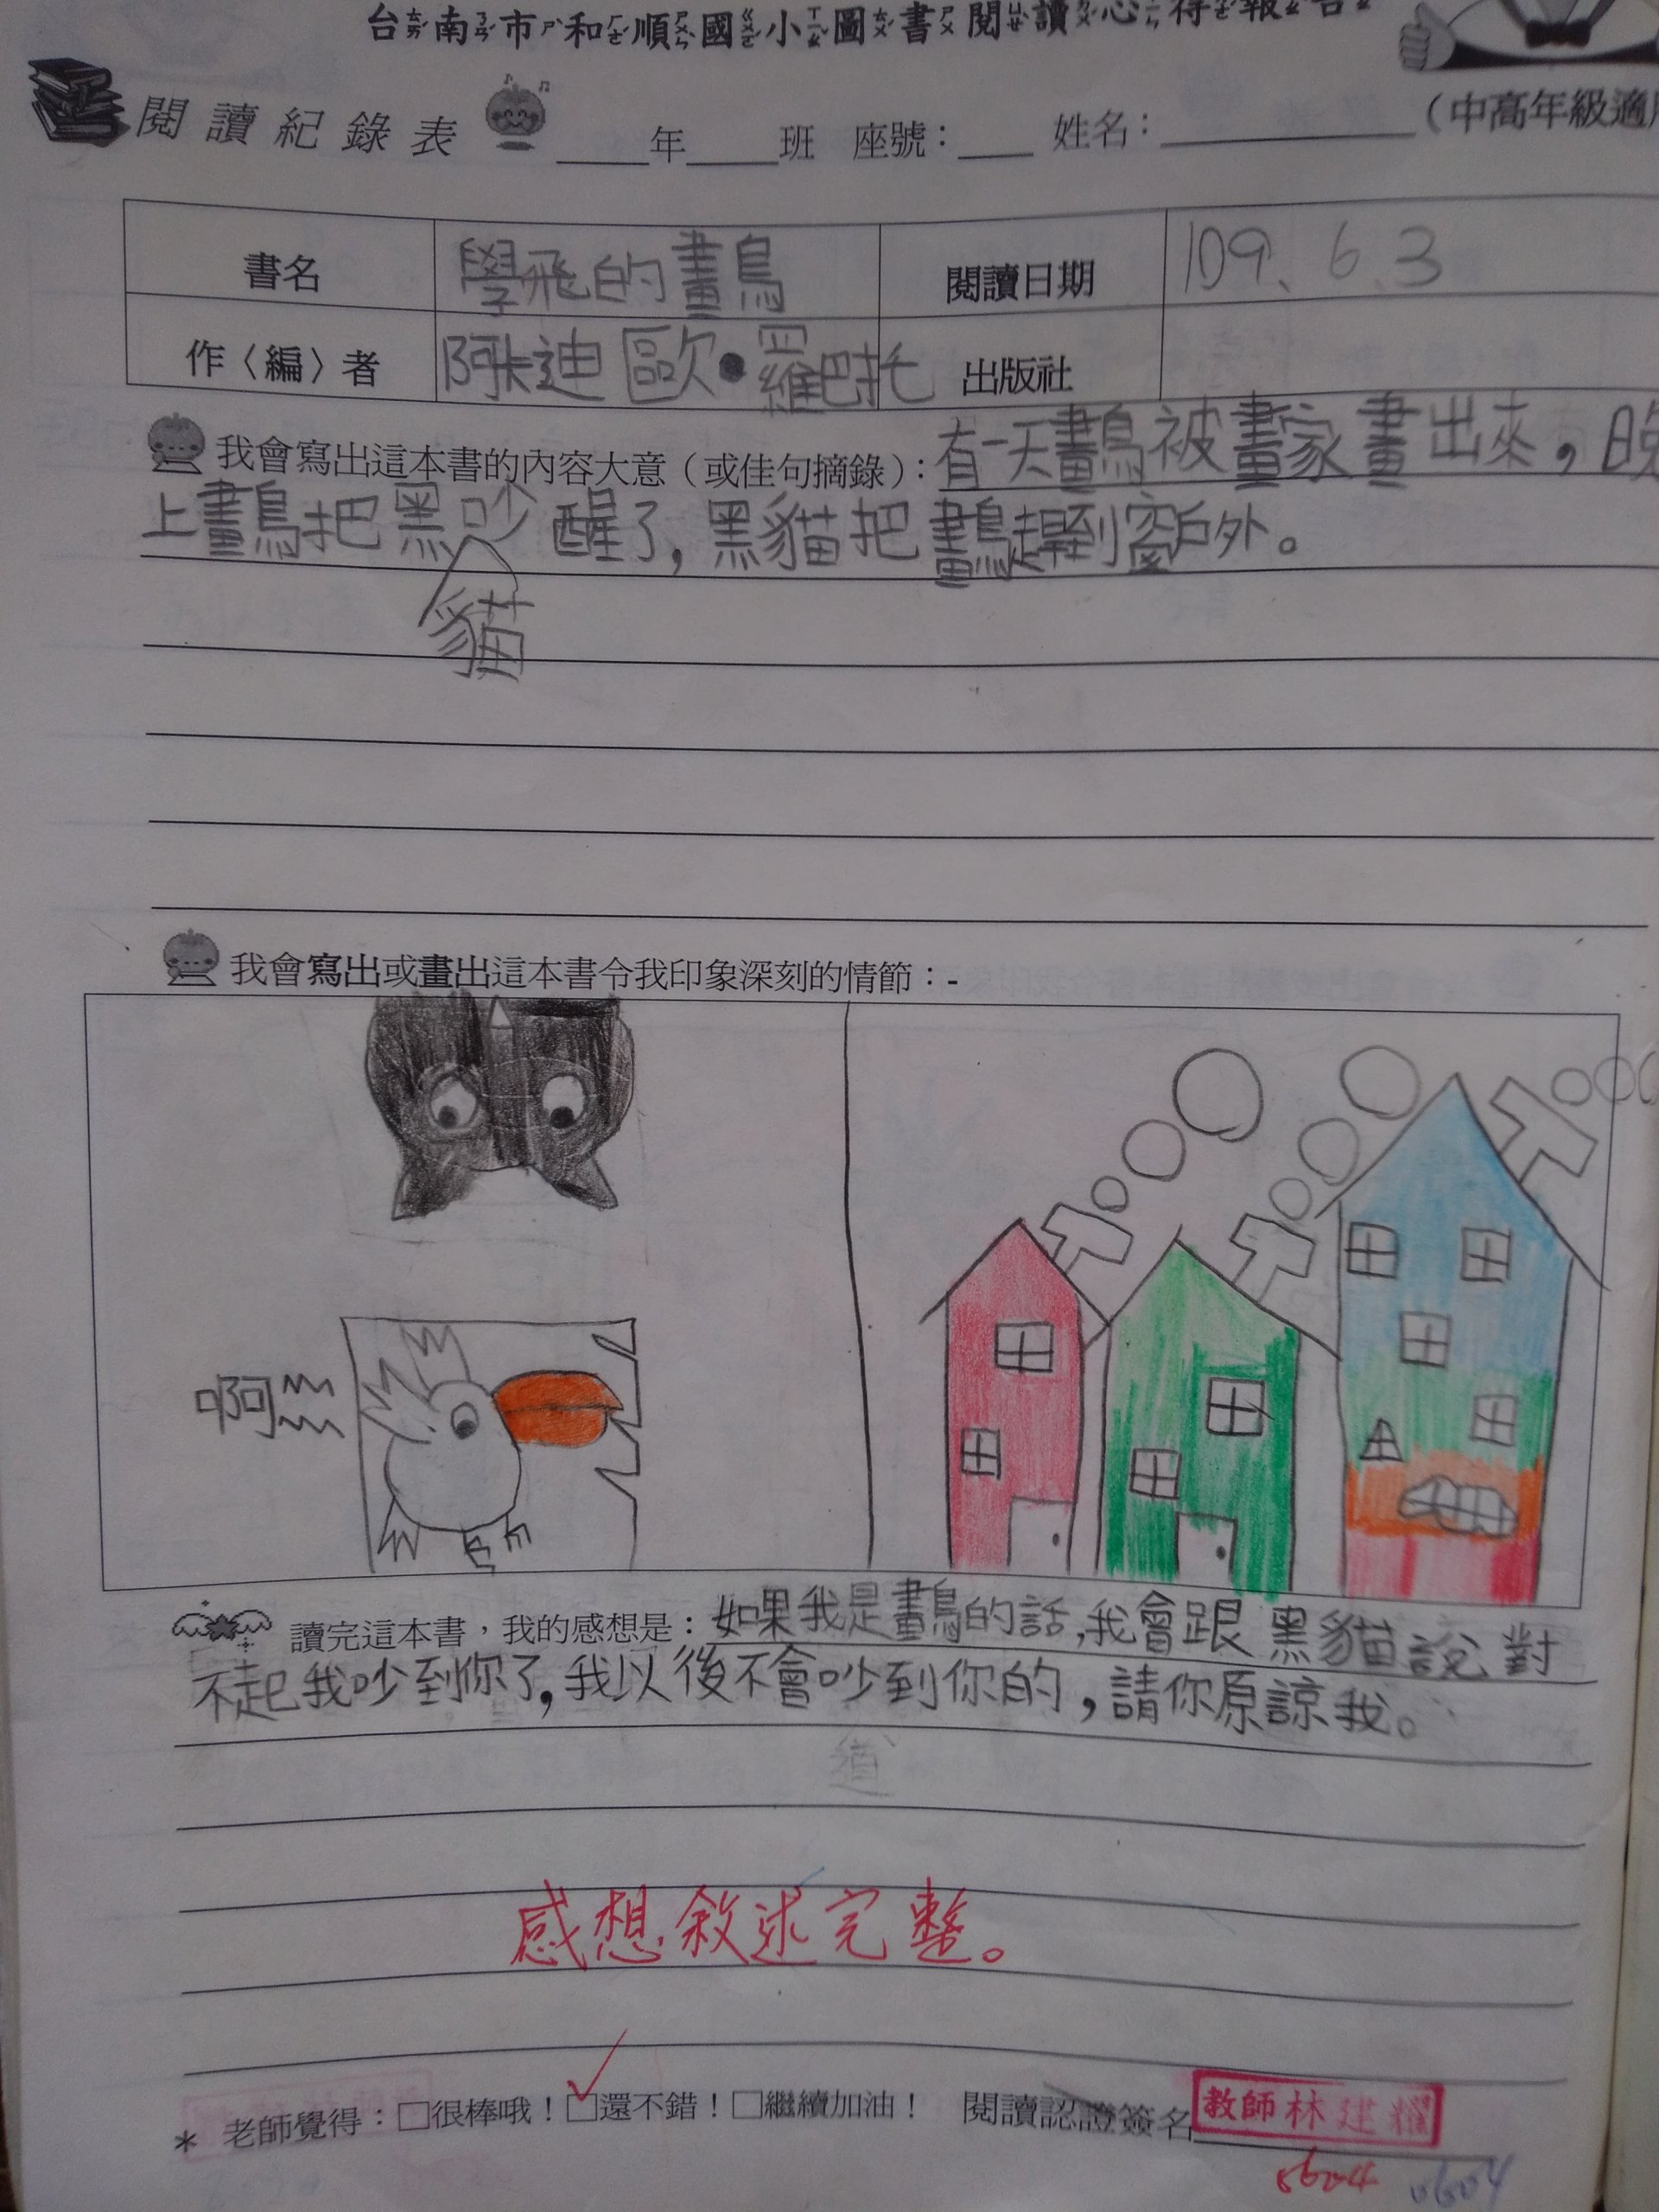 台南市和順國小圖書閱讀心得報告
閱讀紀錄表 ____年____班 座號：____ 姓名：________（中高年級適用
書名 學飛的畫鳥 閱讀日期 109、6、3
作〈編〉者 阿卡迪歐•羅巴托 出版社
我會寫出這本書的內容大意（或佳句摘錄）：有一天畫鳥被畫家畫出來，晚
上畫鳥把黑吵醒了，黑貓把畫鳥趕到窗戶外。
貓
我會寫出或畫出這本書令我印象深刻的情節：-
啊
讀完這本書，我的感想是：如果我是畫鳥的話，我會跟黑貓說對
不起我吵到你了，我以後不會吵到你的，請你原諒我。
道
感想敘述完整。
* 老師覺得：□很棒哦！□還不錯！□繼續加油！ 閱讀認證簽名 教師林建耀
0604 0604